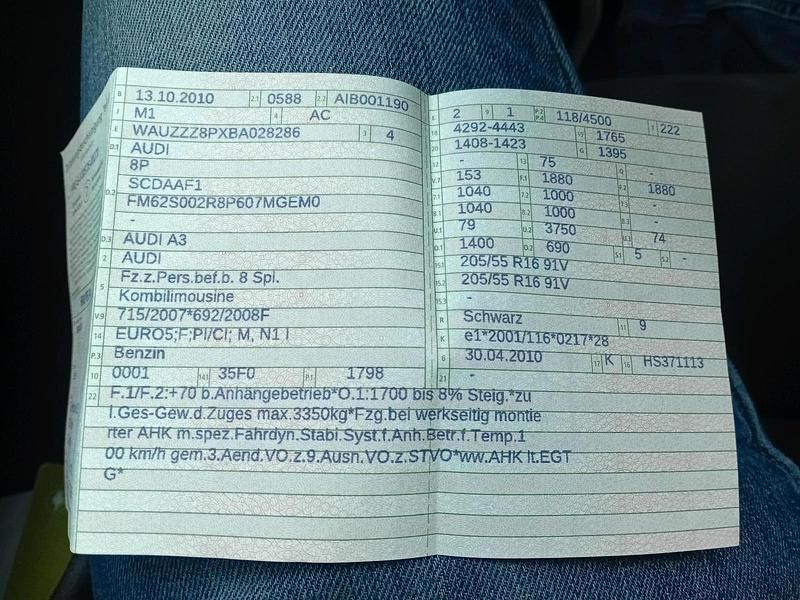 B 13.10.2010 2.1 0588 2.2 AIB001190
J M1 4 AC
E WAUZZZ8PXBA028286 3 4
D.1 AUDI
8P
D.2 SCDAAF1
FM62S002R8P607MGEM0
-
D.3 AUDI A3
2 AUDI
5 Fz.z.Pers.bef.b. 8 Spl.
Kombilimousine
V.9 715/2007*692/2008F
14 EURO5;F;PI/CI; M, N1 I
P.3 Benzin
10 0001 14.1 35F0 P.1 1798
22 F.1/F.2:+70 b.Anhängebetrieb*O.1:1700 bis 8% Steig.*zu
l.Ges-Gew.d.Zuges max.3350kg*Fzg.bei werkseitig montie
rter AHK m.spez.Fahrdyn.Stabi.Syst.f.Anh.Betr.f.Temp.1
00 km/h gem.3.Aend.VO.z.9.Ausn.VO.z.STVO*ww.AHK lt.EGT
G*
2 9 1 P.2 P.4 118/4500 T 222
18 4292-4443 19 1765
20 1408-1423 G 1395
12 - 13 75 Q -
V.7 153 F.1 1880 F.2 1880
7.1 1040 7.2 1000 7.3 -
8.1 1040 8.2 1000 8.3 -
U.1 79 U.2 3750 U.3 74
O.1 1400 O.2 690 S.1 5 S.2 -
15.1 205/55 R16 91V
15.2 205/55 R16 91V
15.3 -
R Schwarz 11 9
K e1*2001/116*0217*28
6 30.04.2010 17 K 16 HS371113
21 -